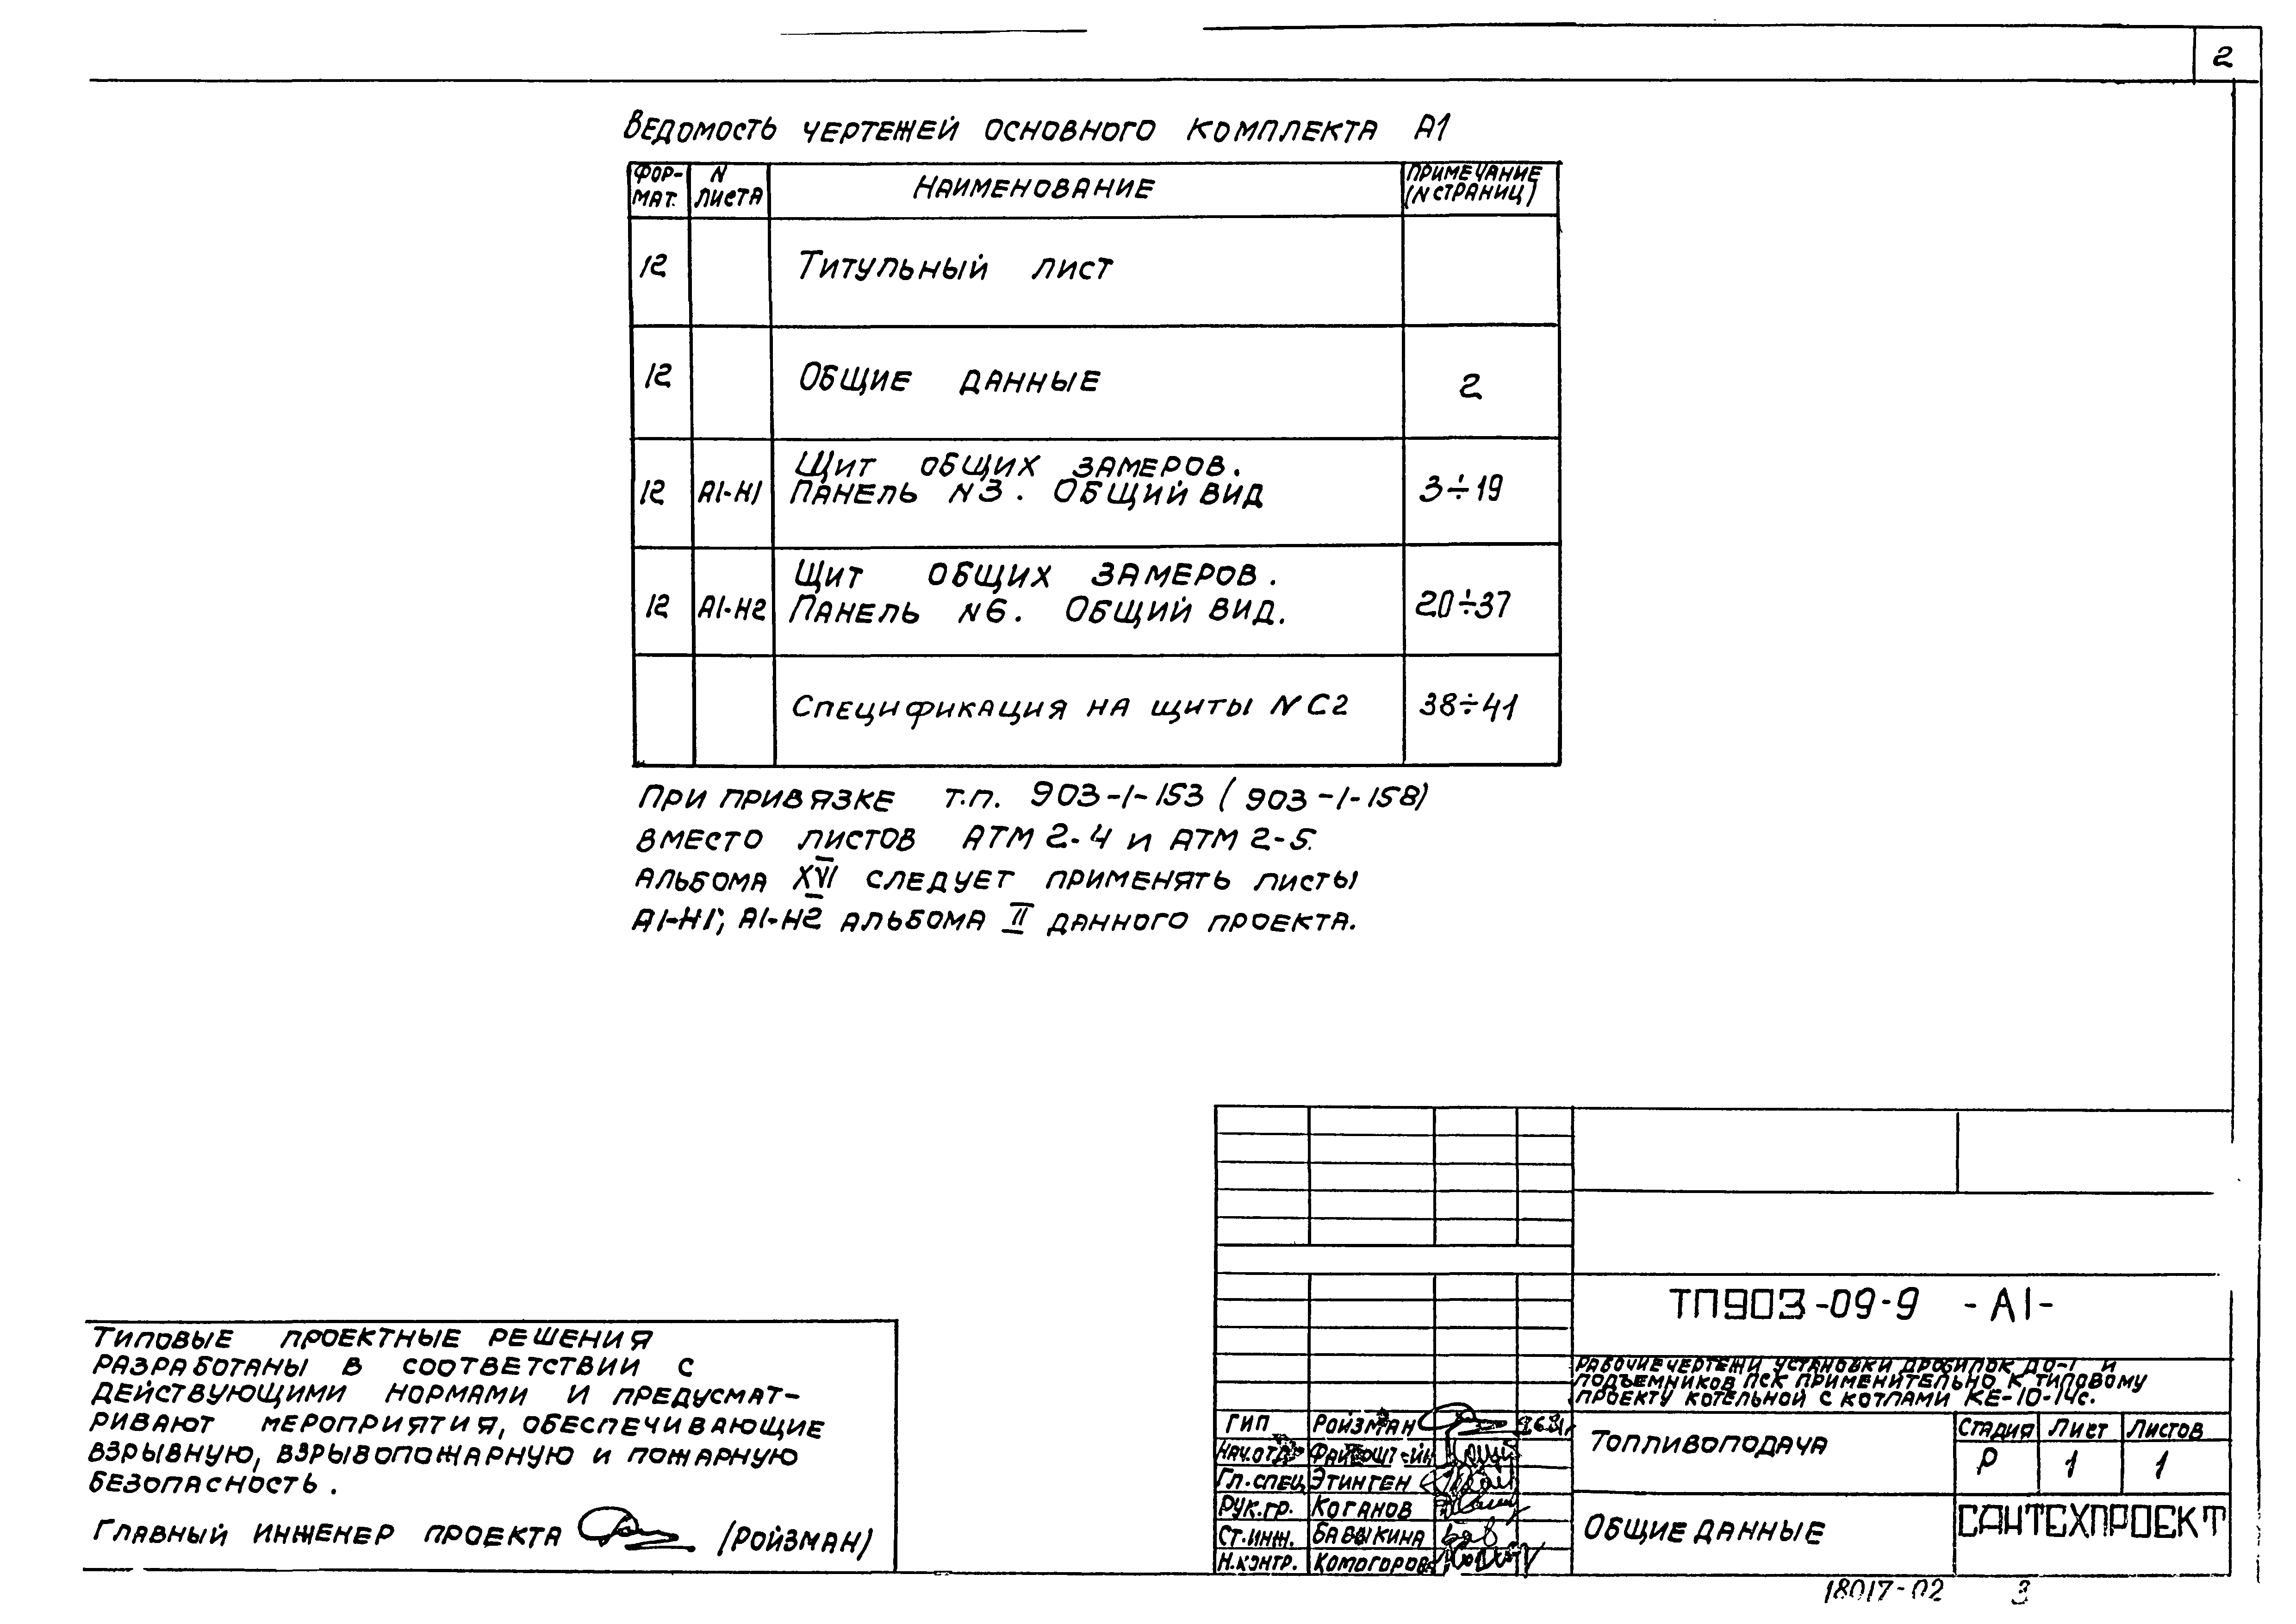 2
Ведомость чертежей основного комплекта А1
Фор-
мат.
N
листа
Наименование
Примечание
(N страниц)
12 Титульный лист
12 Общие данные 2
12 А1-Н1 Щит общих замеров.
Панель N3. Общий вид 3÷19
12 А1-Н2 Щит общих замеров.
Панель N6. Общий вид. 20÷37
Спецификация на щиты N С2 38÷41
При привязке т.п. 903-1-153 (903-1-158)
вместо листов АТМ 2-4 и АТМ 2-5.
альбома XVI следует применять листы
А1-Н1; А1-Н2 альбома II данного проекта.
Типовые проектные решения
разработаны в соответствии с
действующими нормами и предусмат-
ривают мероприятия, обеспечивающие
взрывную, взрывопожарную и пожарную
безопасность.
Главный инженер проекта (Ройзман)
ТП903-09-9 -А1-
Рабочие чертежи установки дробилок ДО-1 и
подъемников ПСК применительно к типовому
проекту котельной с котлами КЕ-10-14с.
ГИП Ройзман
Нач.отд.
Гл.спец. Этинген
Рук.гр. Коганов
Ст.инж.
Н.контр. Комогорова
Топливоподача
Стадия Лист Листов
Р 1 1
Общие данные
САНТЕХПРОЕКТ
18017-02 3